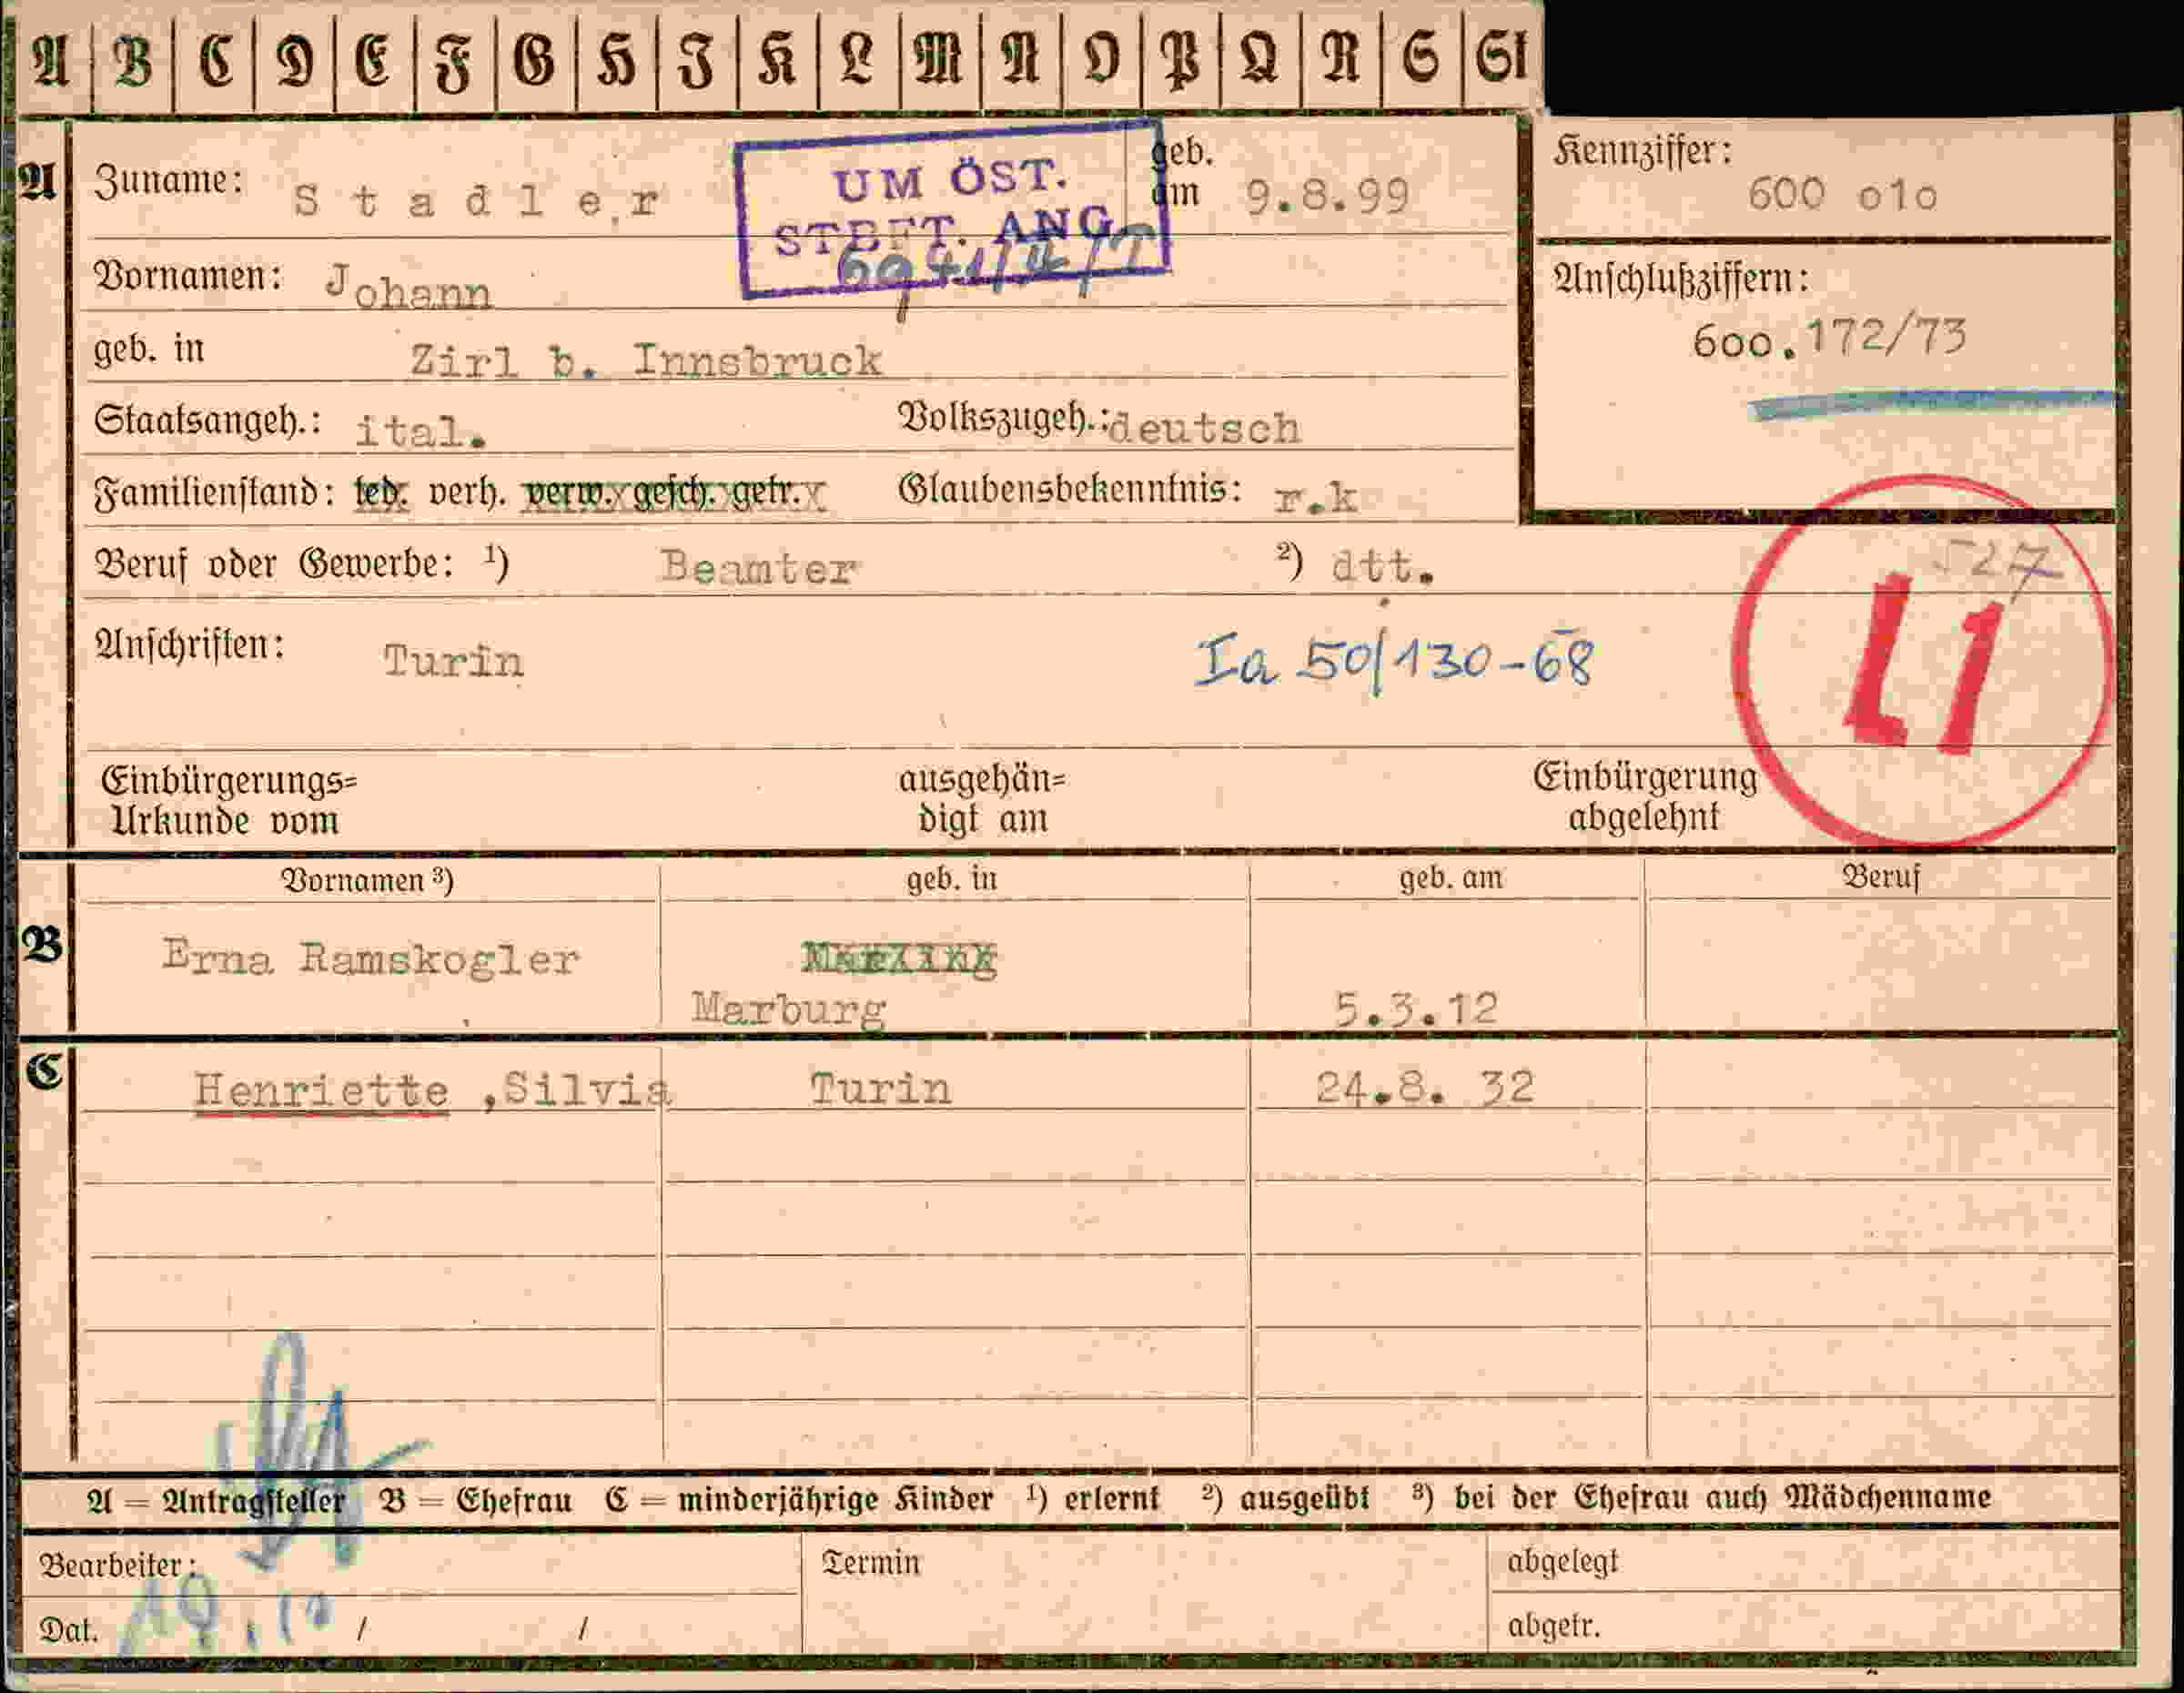 A B C D E F G H I K L M N O P Q R S St
A Zuname: Stadler geb. am 9.8.99
UM ÖST.
STBFT. ANG.
Kennziffer:
600 o1o
Vornamen: Johann
Anschlußziffern:
600.172/73
geb. in Zirl b. Innsbruck
Staatsangeh.: ital. Volkszugeh.: deutsch
Familienstand: led. verh. verw. gesch. getr. Glaubensbekenntnis: r.k
Beruf oder Gewerbe: ¹) Beamter ²) dtt. 527
Anschriften: Turin Ia 50/130-68
L1
Einbürgerungs=
Urkunde vom
ausgehän=
digt am
Einbürgerung
abgelehnt
Vornamen ³) geb. in geb. am Beruf
B Erna Ramskogler
Marburg 5.3.12
C Henriette ,Silvia Turin 24.8. 32
A = Antragsteller B = Ehefrau C = minderjährige Kinder ¹) erlernt ²) ausgeübt ³) bei der Ehefrau auch Mädchenname
Bearbeiter: Termin abgelegt
Dat. 19.10 / / abgetr.